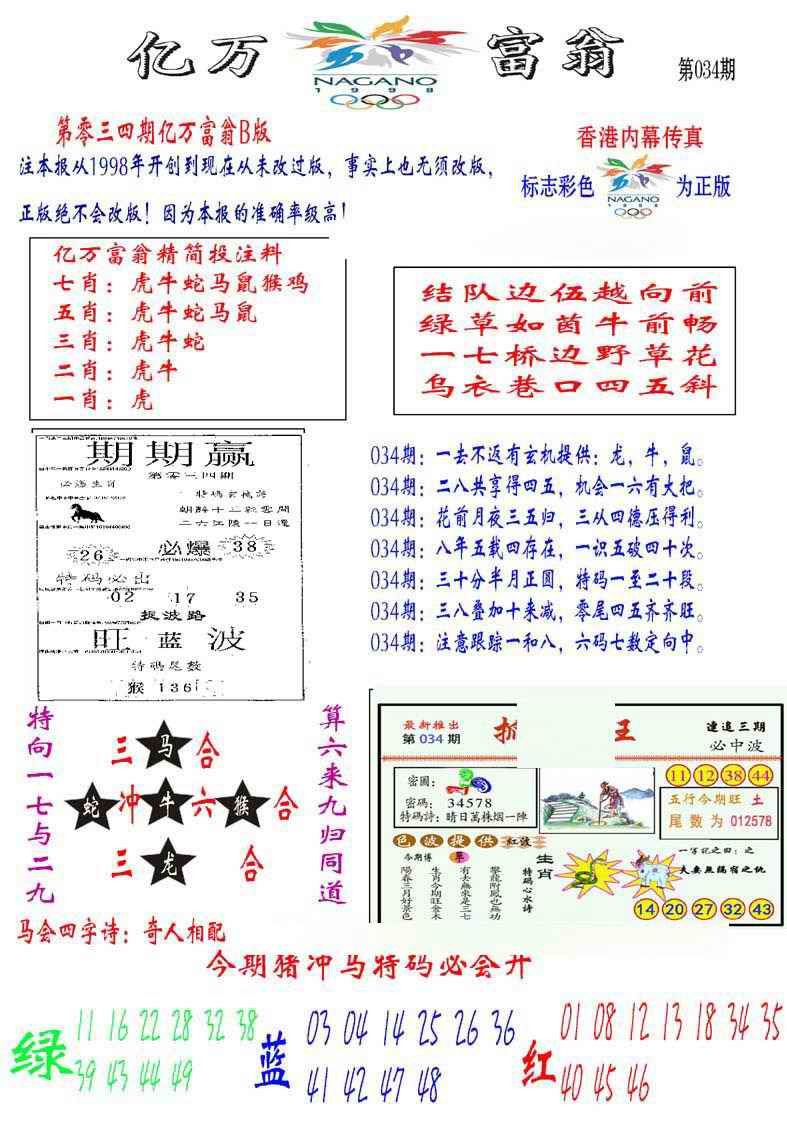 亿万富翁
NAGANO
1998
第034期
第零三四期亿万富翁B版
注本报从1998年开创到现在从未改过版，事实上也无须改版，
正版绝不会改版！因为本报的准确率级高！
香港内幕传真
标志彩色
NAGANO
1998
为正版
亿万富翁精简投注料
七肖：虎牛蛇马鼠猴鸡
五肖：虎牛蛇马鼠
三肖：虎牛蛇
二肖：虎牛
一肖：虎
结队边伍越向前
绿草如茵牛前畅
一七桥边野草花
乌衣巷口四五斜
期期赢
第零三四期
必选生肖
二六江陵一日還
26
必爆
38
特码必出
02 17 35
捉波路
旺蓝波
特碼尾数
猴 136
034期：一去不返有玄机提供：龙，牛，鼠。
034期：二八共享得四五，机会一六有大把。
034期：花前月夜三五归，三从四德压得利。
034期：八年五载四存在，一识五破四十次。
034期：三十分半月正圆，特码一至二十段。
034期：三八叠加十来减，零尾四五齐齐旺。
034期：注意跟踪一和八，六码七数定向中。
特向一七与二九
三 马 合
蛇 冲 牛 六 猴 合
三 龙 合
算六来九归同道
最新推出
第 034 期
王
連追三期
必中波
密圖：
密碼： 34578
特码詩：晴日萬株烟一陣
11 12 38 44
五行今期旺 土
尾数为 012578
色波提供 红波
今期博
單
陽春三月好景色
生肖今期旺金木
有去無來是三七
攀龍附鳳也無功
特碼心水诗
生肖
一字记之曰：之
夫妻無隔宿之仇
14 20 27 32 43
马会四字诗：奇人相配
今期猪冲马特码必会开
绿
11 16 22 28 32 38
39 43 44 49
蓝
03 04 14 25 26 36
41 42 47 48
红
01 08 12 13 18 34 35
40 45 46